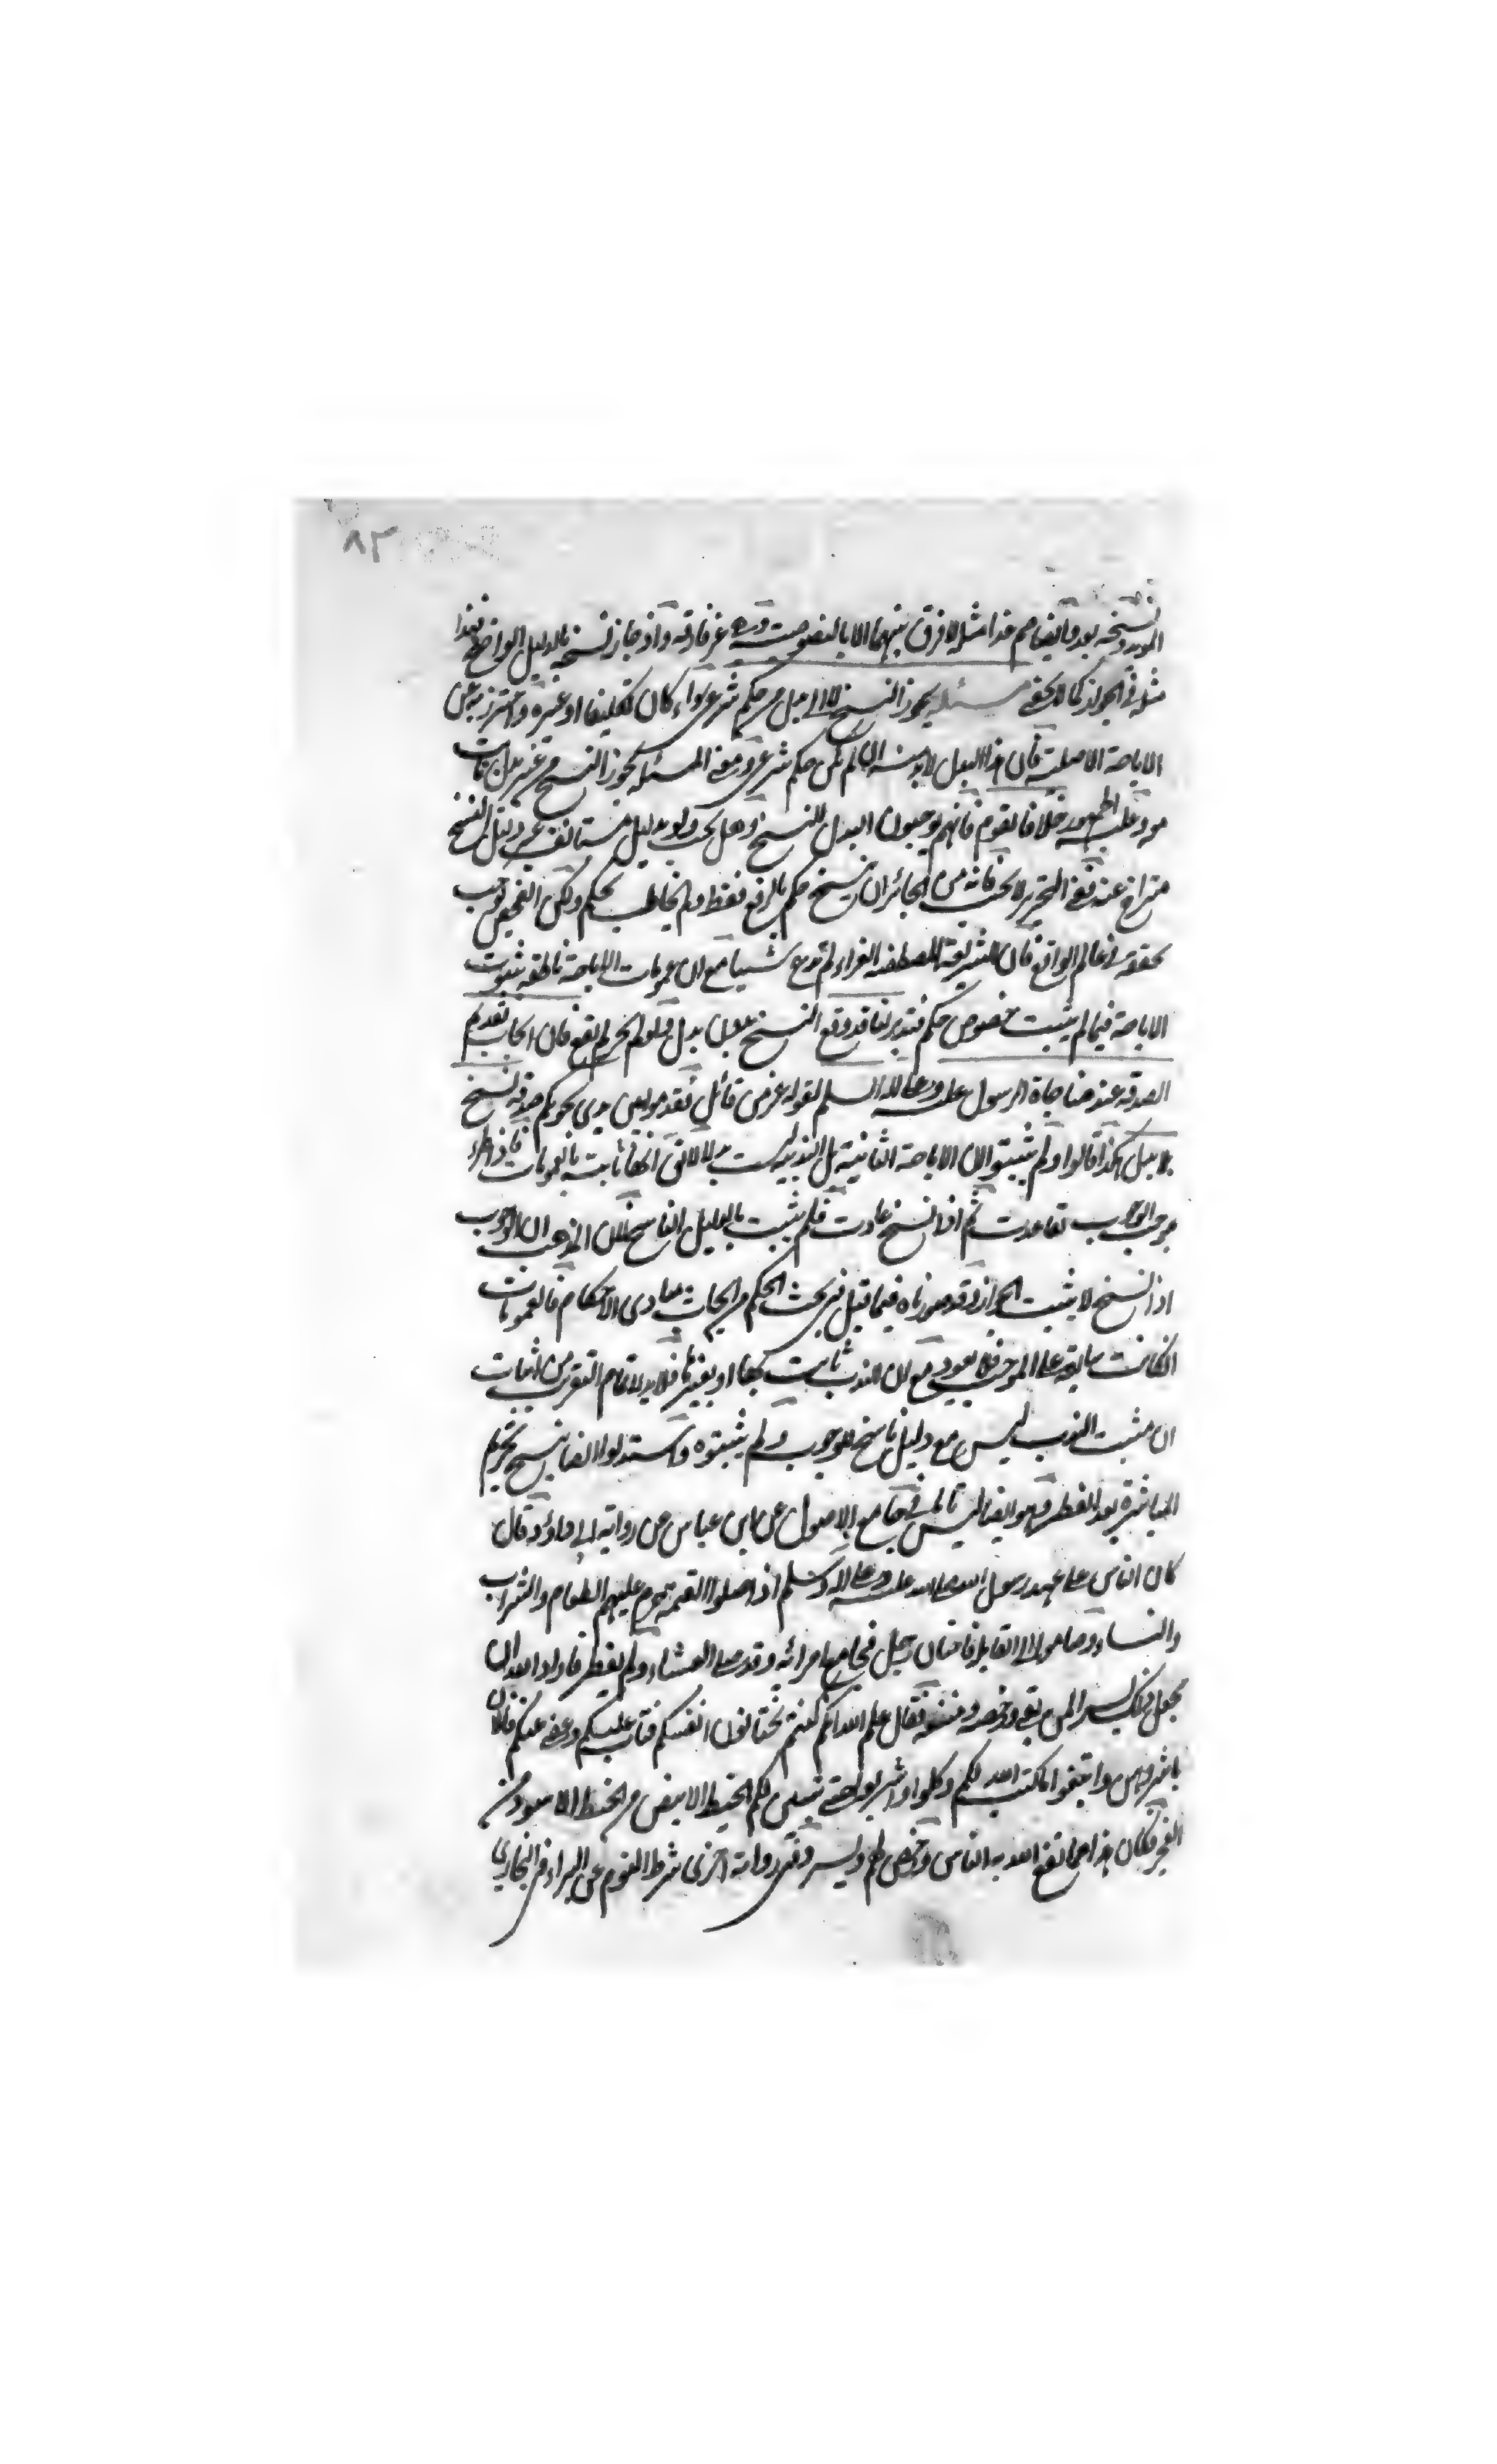 ٨٢
المؤبد ونسخه بعد وايضا صم غدا مثله لا فرق بينهما الا بالنصوصية وهى غير فارقة واذ جاز نسخه بالدليل الواضح فهذا
مثله فى الجواز كما لا يخفى مسئلة يجوز النسخ لا الى بدل من حكم شرعى سواء كان تكليفا او غيره واحترز به عن
الاباحة الاصلية فان هذا البدل لابد منه ان لم يكن حكم شرعى ومعنى المسئلة يجوز النسخ من غير بدل ثابت
عليه الجمهور خلافا لقوم فانهم يوجبون البدل للنسخ وهل يجب ولو بدليل مستانف غير دليل النسخ
متراخ عنه ففى التحرير لا يجب فانه من الجائز ان ينسخ حكم بالرفع فقط ولم يخاطب بحكم ولكن الفحص يوجب
تحققه فى عالم الواقع فان الشريعة المصطفية الغراء لم تدع شيئا مع ان عمومات الاباحة ناطقة بثبوت
الاباحة فيما لم يثبت خصوص حكم فتدبر لنا قد وقع النسخ بلا بدل ولو لم يجز لم يقع فان ايجاب تقديم
الصدقة عند مناجاة الرسول عليه وعلى اله السلم لقوله عز من قائل فقدموا بين يدى نجويكم صدقة نسخ
بلا بدل هكذا قالوا ولم يثبتوا الان الاباحة الثانية بل الندبية ليست بدلا لانها ثابتة بالعمومات فاذ طرء
موجب الوجوب تقاعدت ثم اذا نسخ عادت فلم يثبت بالدليل الناسخ لان المذهب ان الوجوب
اذا نسخ لا يثبت الجواز وقد حررناه فيما قبل فى بحث الحكم من ابحاث مبادى الاحكام فالعمومات
ان كانت سابقة على الموجب فلا يعود مع ان الندب ثابت بها او بغيرها فلابد لاتمام التقريب من اثبات
ان مثبت الندب ليس مع دليل ناسخ للوجوب ولم يثبتوه واستدلوا ايضا بنسخ تحريم
المباشرة بعد الفطر وهو ايضا ليس بتام لما فى جامع الاصول عن ابن عباس من رواية ابى داؤد قال
كان الناس على عهد رسول الله صلى الله عليه وعلى اله وسلم اذا صلوا العتمة حرم عليهم الطعام والشراب
والنساء وصاموا الى القابلة فاختان رجل فجامع امرأته وقد صلى العشاء ولم يفطر فاراد الله ان
يجعل ذلك يسرا لمن بقى ورخصة ومنفعة فقال علم الله انكم كنتم تختانون انفسكم فتاب عليكم وعفى عنكم فالان
باشروهن وابتغوا ما كتب الله لكم وكلوا واشربوا حتى يتبين لكم الخيط الابيض من الخيط الاسود من
الفجر فكان هذا مما نفع الله به الناس ورخص لهم ويسر وفى رواية اخرى شرط النوم عن البراء فى البخارى